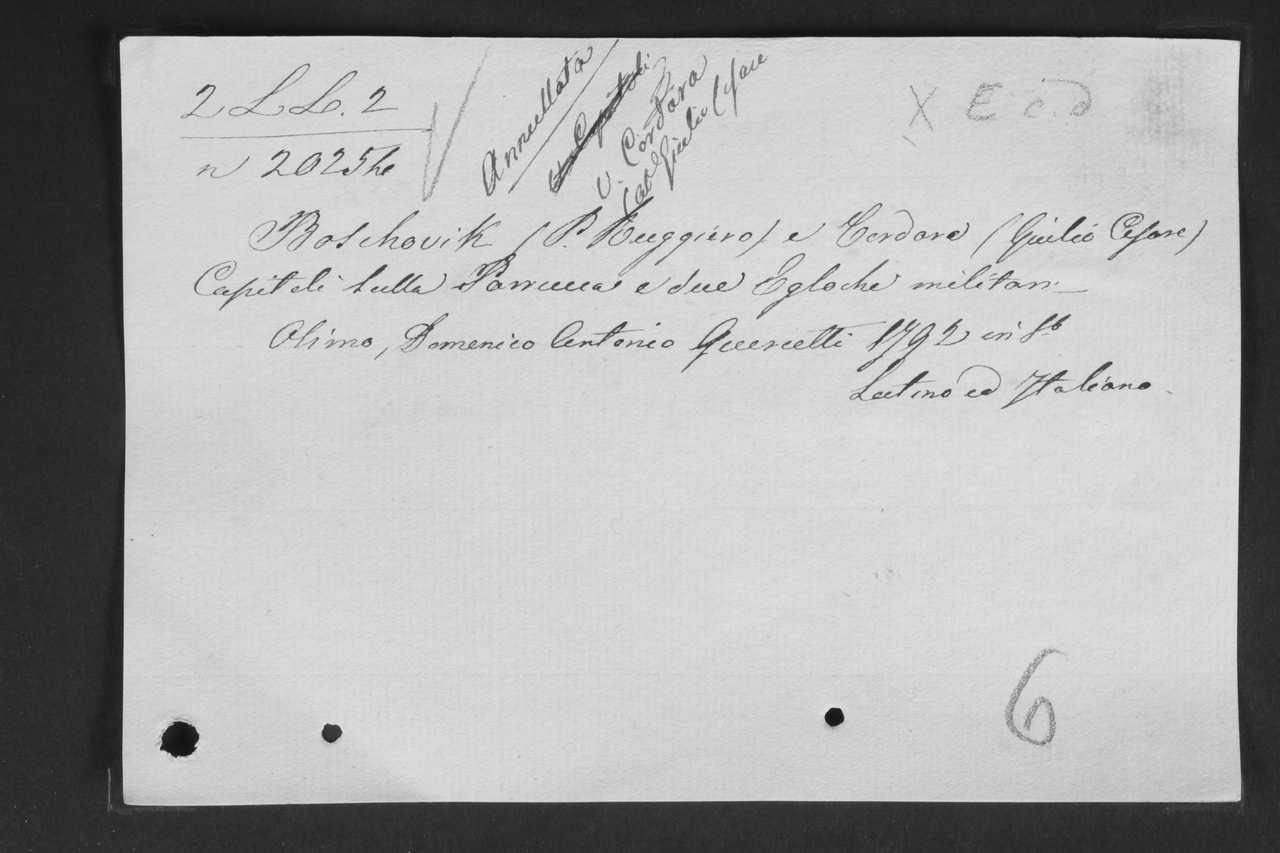 2 L L. 2
n 20254
Annullata
v. Capitoli
v. Cordara
(ab. Giulio Cesare
X E c d
Boschovik (P. Ruggiero) e Cordara (Giulio Cesare)
Capitoli sulla Parrucca e due Egloche militari
Osimo, Domenico Antonio Quercetti 1792 in 8°
Latino ed Italiano.
6